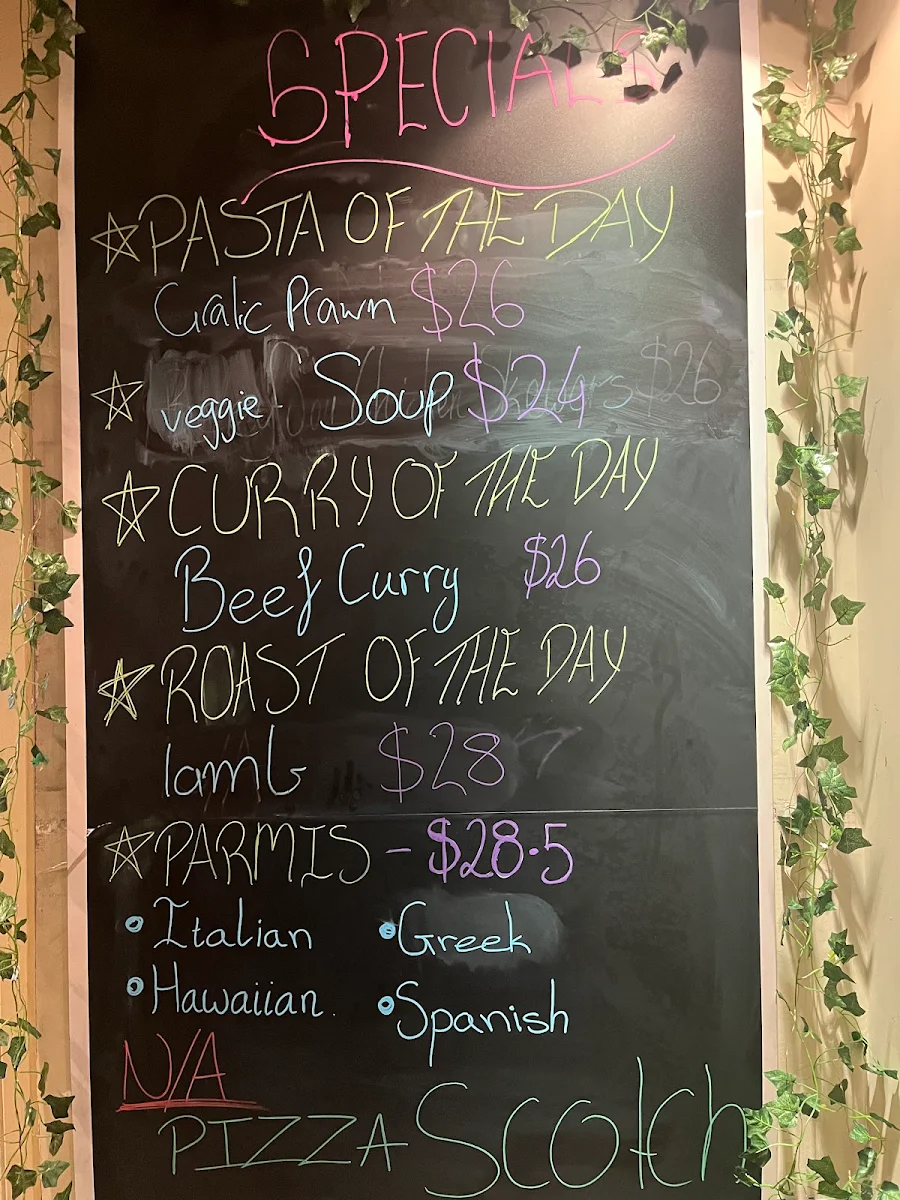 SPECIALS
☆ PASTA OF THE DAY
Gralic Prawn $26
☆ veggie - Soup $24
☆ CURRY OF THE DAY
Beef Curry $26
☆ ROAST OF THE DAY
lamb $28
☆ PARMIS - $28.5
• Italian • Greek
• Hawaiian • Spanish
N/A
PIZZA Scotch